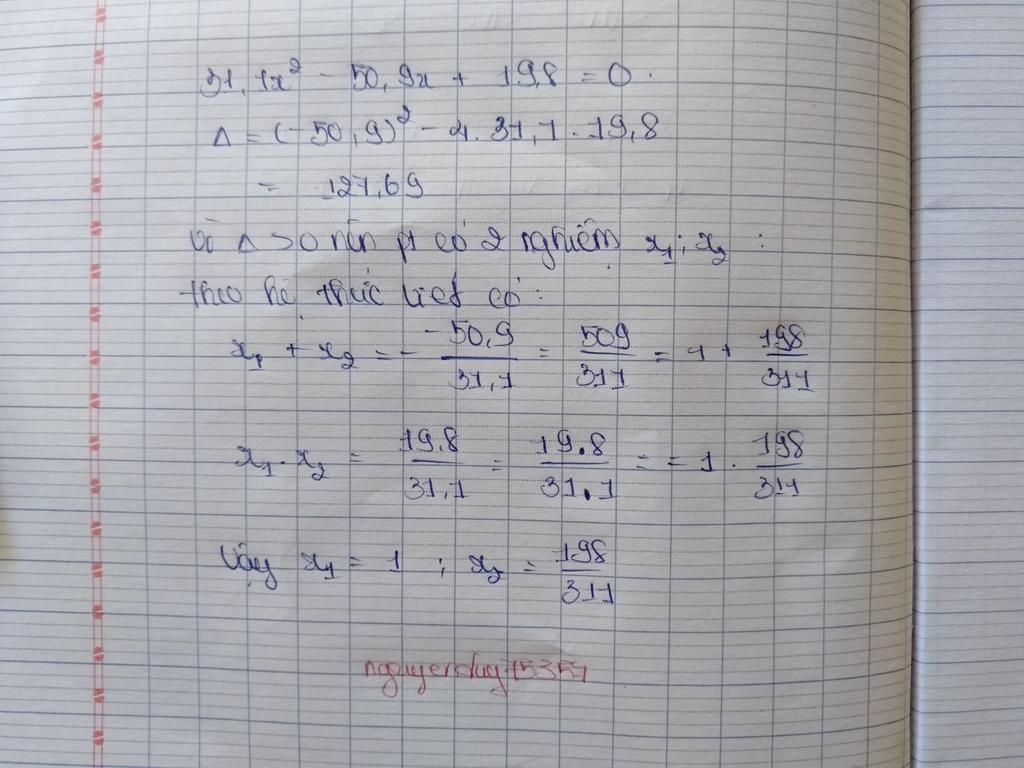 31,1x² - 50,9x + 19,8 = 0.
Δ = (-50,9)² - 4. 31,1 . 19,8
= 127,69
Vì Δ > 0 nên pt có 2 nghiệm x₁; x₂ :
theo hệ thức Viet có:
x₁ + x₂ = - -50,9/31,1 = 509/311 = 1 + 198/311
x₁ . x₂ = 19,8/31,1 = 19.8/31.1 = = 1 . 198/311
Vậy x₁ = 1 ; x₂ = 198/311
nguyenduy15351